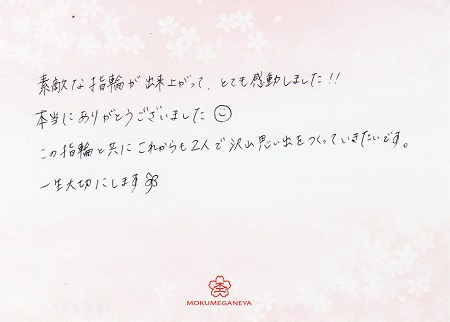 素敵な指輪が出来上がって、とても感動しました!!
本当にありがとうございました☺
この指輪と共にこれからも2人で沢山思い出をつくっていきたいです。
一生大切にします
MOKUMEGANEYA